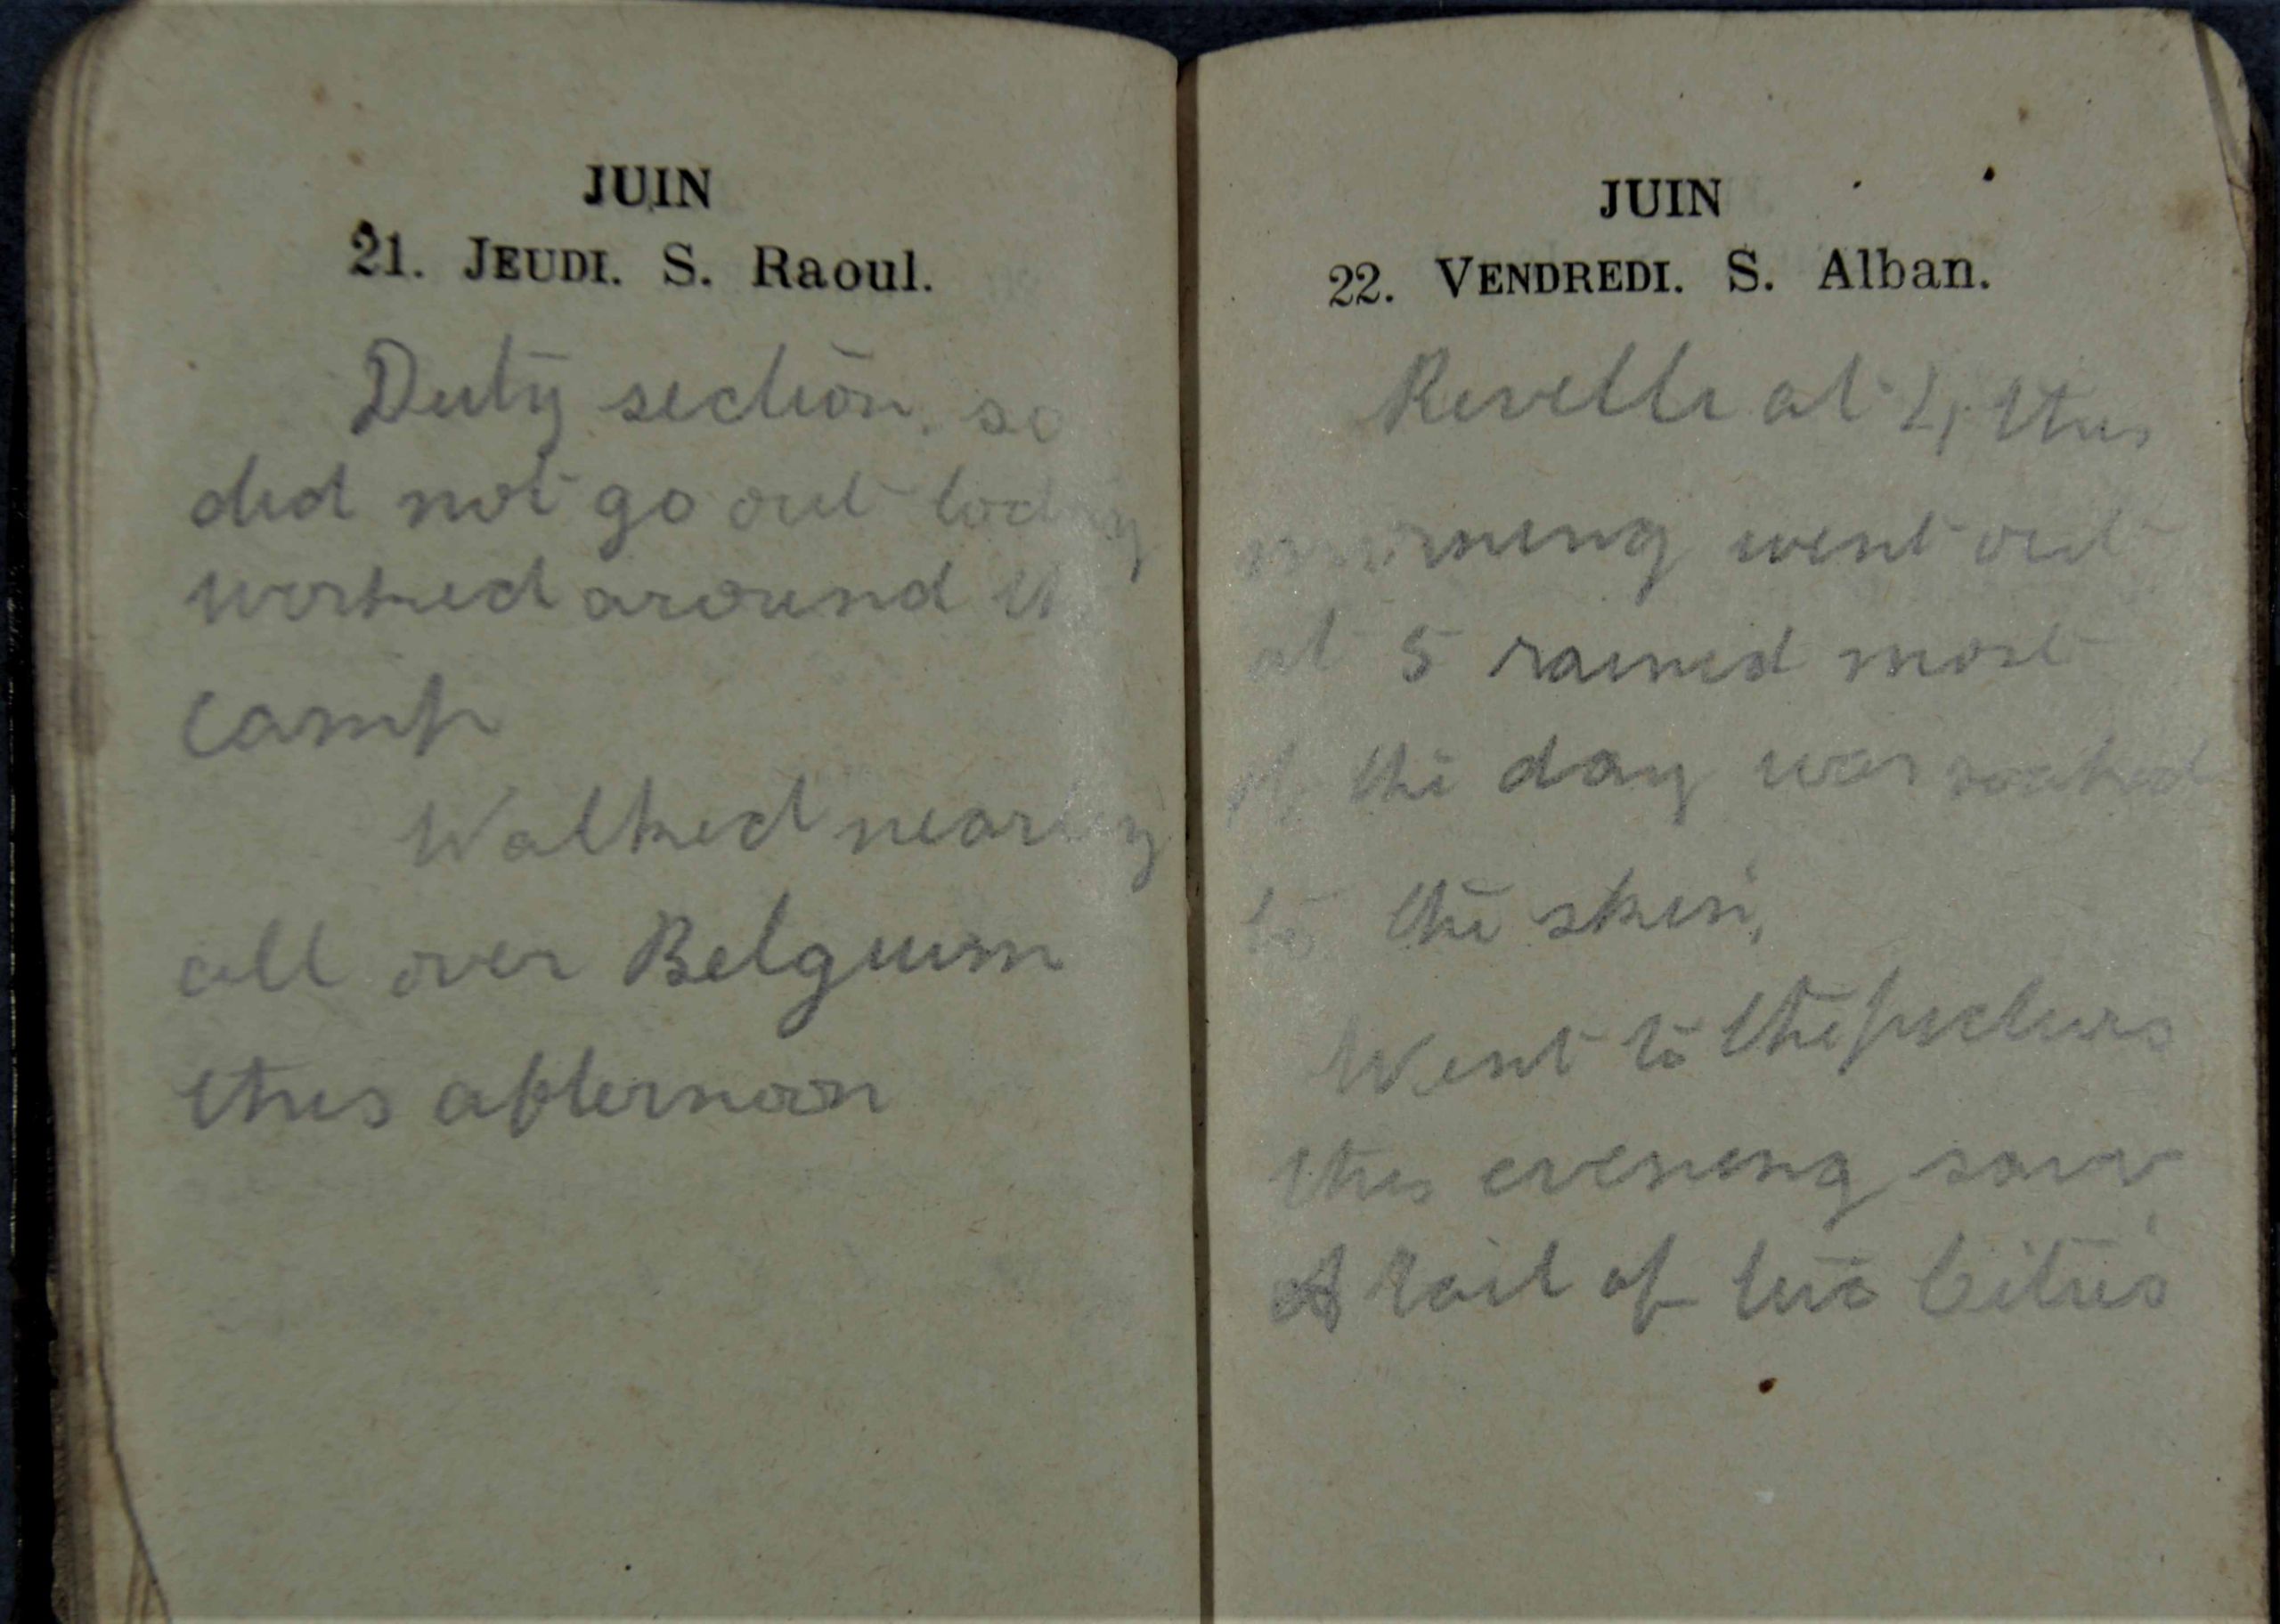 JUIN
21. JEUDI. S. Raoul.
Duty section, so
did not go out today
worked around the
camp
Walked nearly
all over Belguim
this afternoon
JUIN
22. VENDREDI. S. Alban.
Revelle at 4, this
morning went out
at 5 rained most
of the day was soaked
to the skin,
Went to the pictures
this evening saw
A tail of two Cities